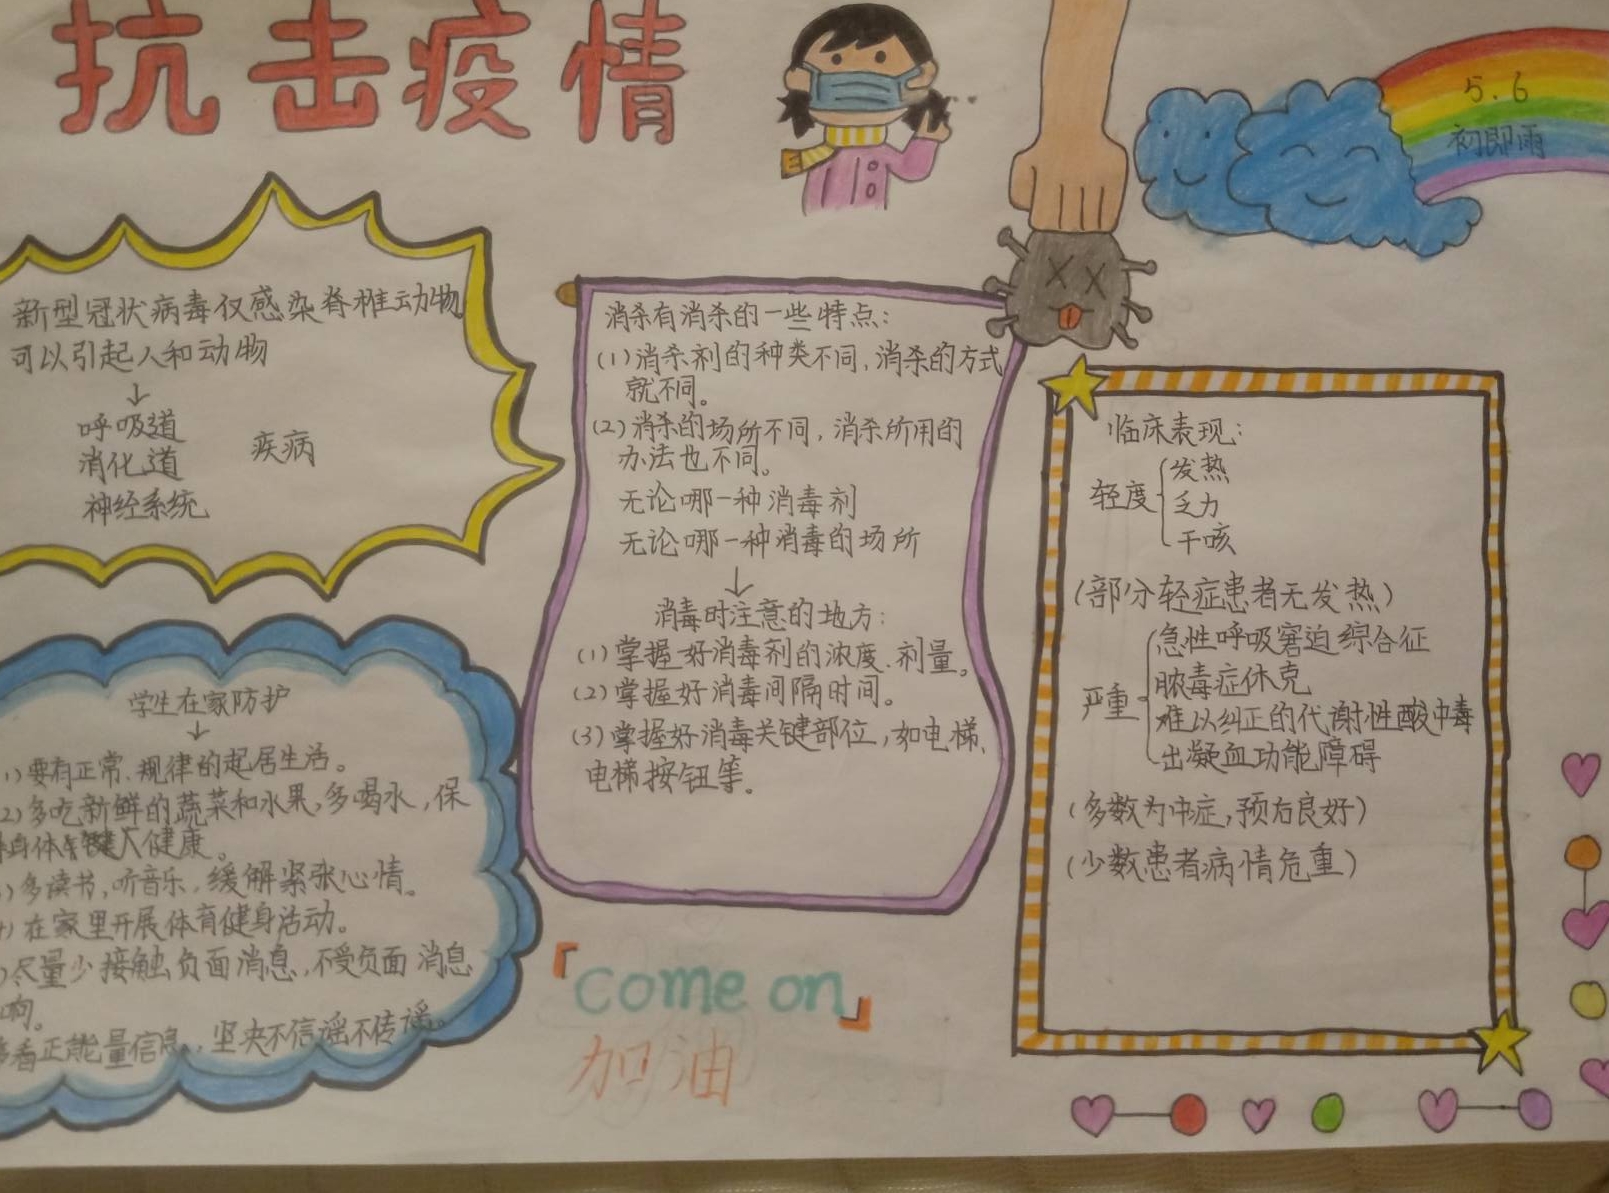 抗击疫情
5.6
初即雨
新型冠状病毒仅感染脊椎动物
可以引起人和动物
↓
呼吸道
消化道 疾病
神经系统
学生在家防护
↓
1)要有正常、规律的起居生活。
2)多吃新鲜的蔬菜和水果,多喝水,保
身体健康。
)多读书,听音乐,缓解紧张心情。
)在家里开展体育健身活动。
)尽量少接触负面消息,不受负面消息
响。
多看正能量信息,坚决不信谣不传谣。
消杀有消杀的一些特点:
(1)消杀剂的种类不同,消杀的方式
就不同。
(2)消杀的场所不同,消杀所用的
办法也不同。
无论哪一种消毒剂
无论哪一种消毒的场所
↓
消毒时注意的地方:
(1)掌握好消毒剂的浓度、剂量。
(2)掌握好消毒间隔时间。
(3)掌握好消毒关键部位,如电梯、
电梯按钮等。
「come on」
加油
临床表现:
轻度 发热
乏力
干咳
(部分轻症患者无发热)
严重 急性呼吸窘迫综合征
脓毒症休克
难以纠正的代谢性酸中毒
出凝血功能障碍
(多数为中症,预后良好)
(少数患者病情危重)